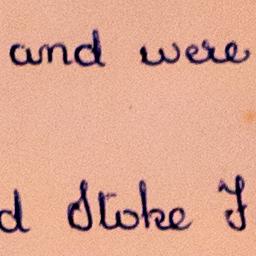 and were
d Stoke F